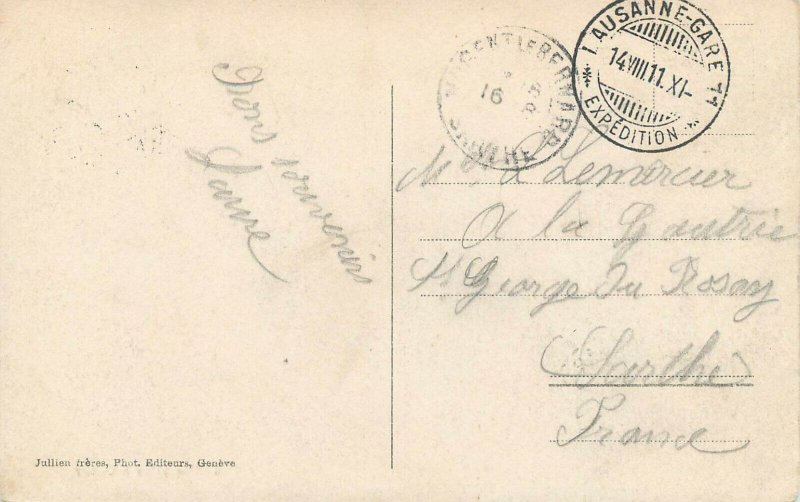 Bons souvenirs
Jullien frères, Phot. Editeurs, Genève
LAUSANNE-GARE 11
14 VIII.11.XI-
EXPÉDITION
16
SARTHE
L Lemarcier
A la Gautrie
St George Du Rosay
Sarthe
France